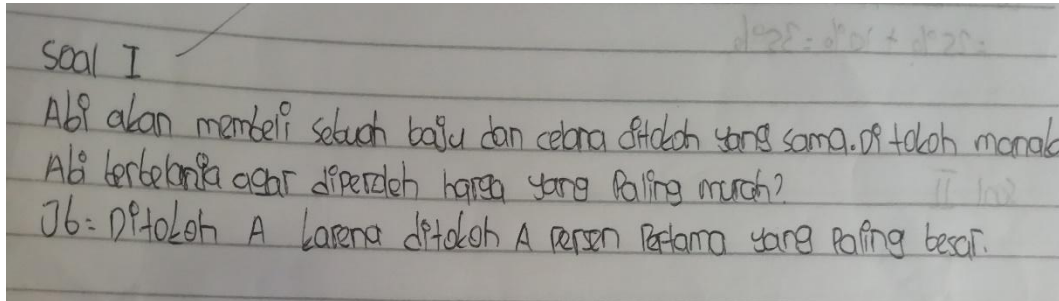 Soal I
Abi akan membeli sebuah baju dan celana ditokoh yang sama. Di tokoh manak
Abi berbelanja agar diperoleh harga yang Paling murah?
Jb = Ditokoh A karena ditokoh A persen Pertama yang paling besar.